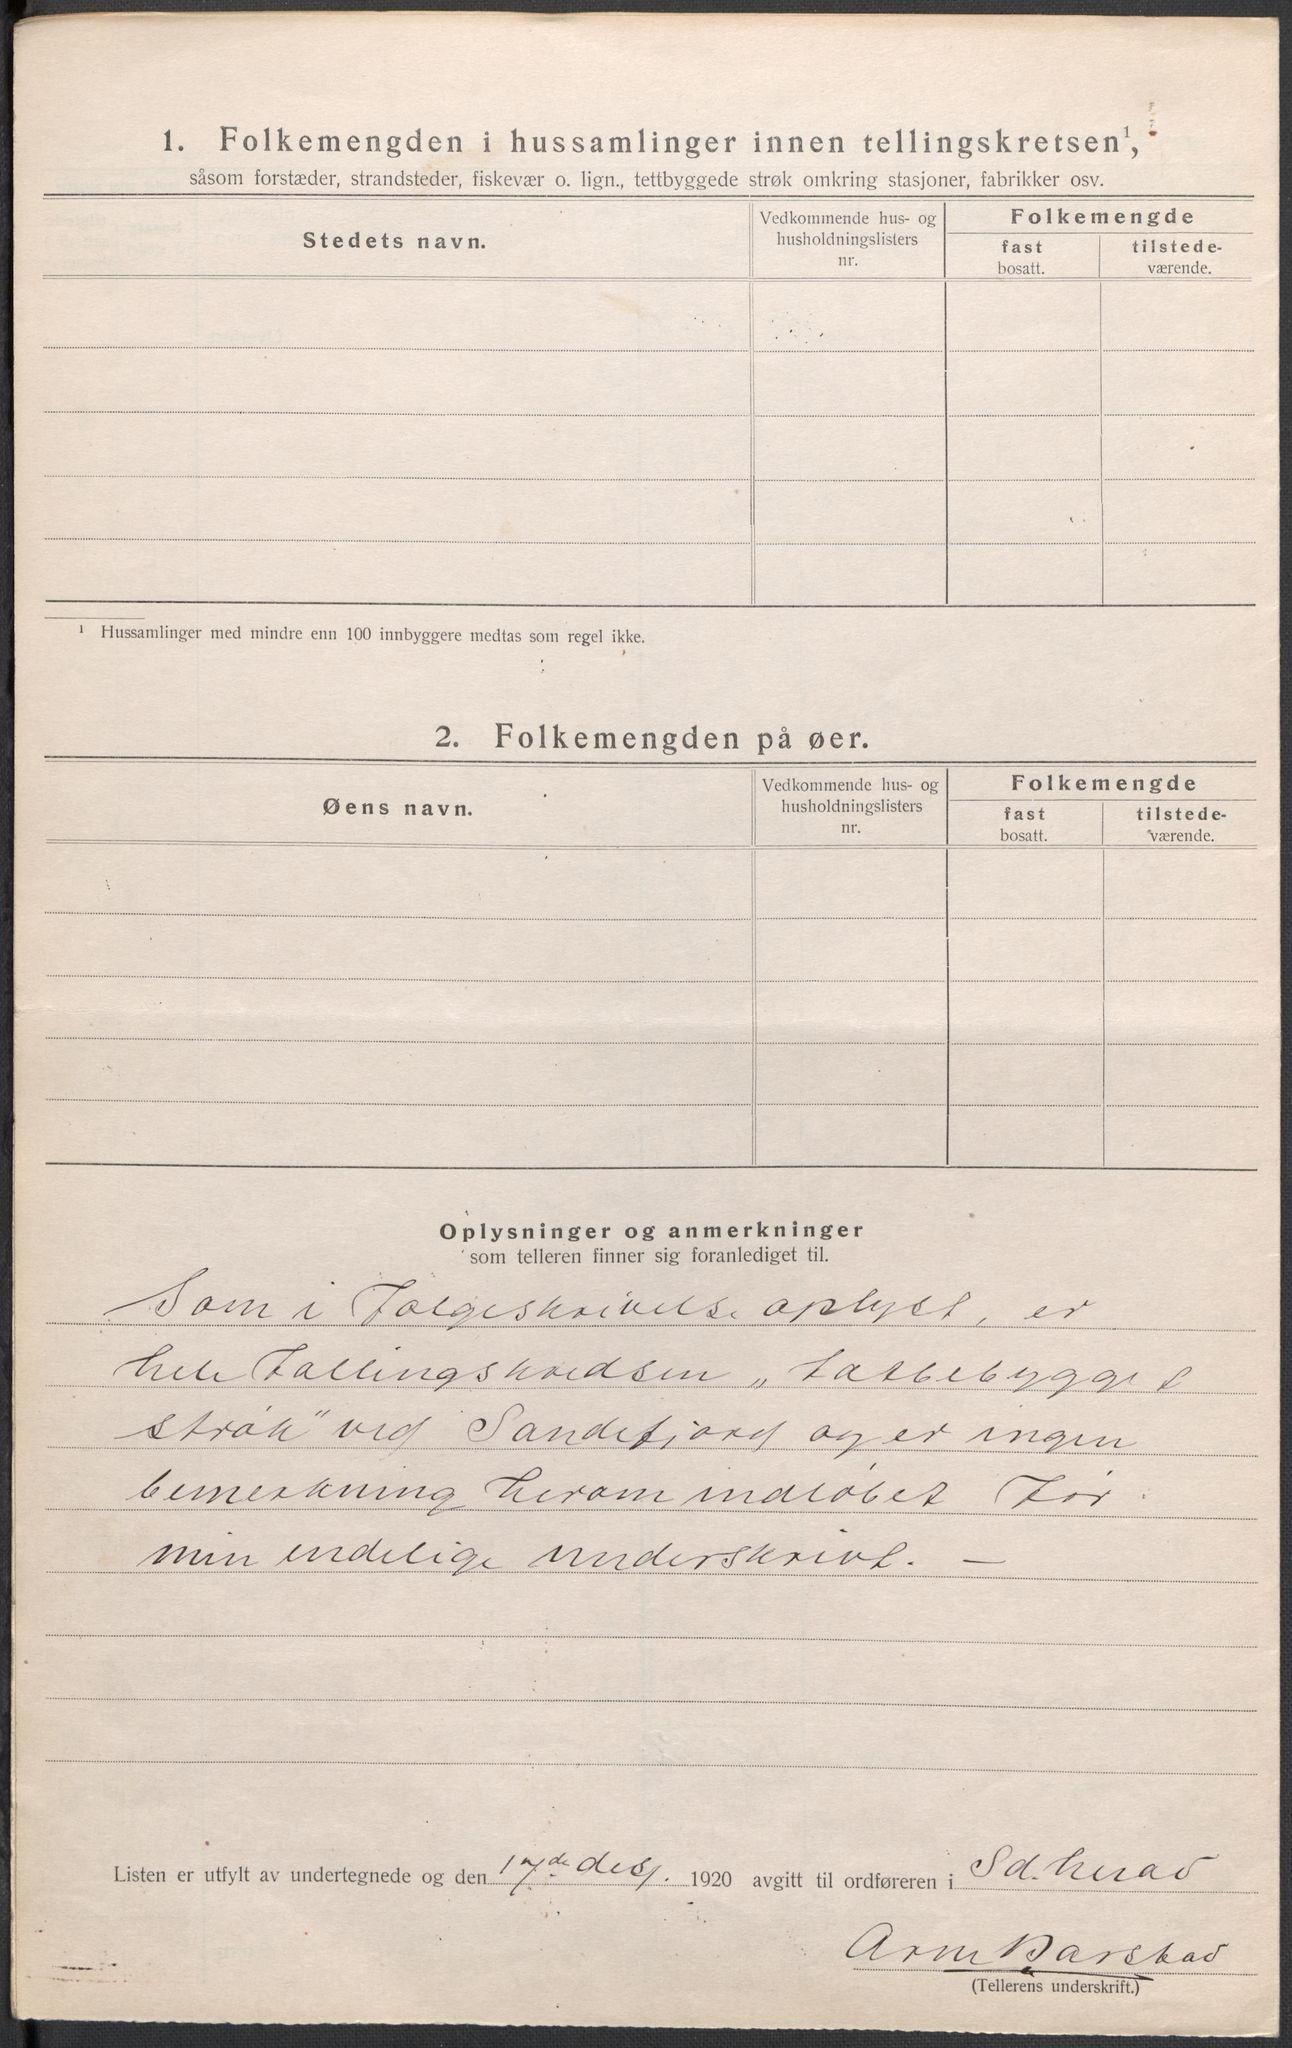 1. Folkemengden i hussamlinger innen tellingskretsen¹,
såsom forstæder, strandsteder, fiskevær o. lign., tettbyggede strøk omkring stasjoner, fabrikker osv.
Stedets navn.
Vedkommende hus- og
husholdningslisters
nr.
Folkemengde
fast
bosatt.
tilstede-
værende.
¹ Hussamlinger med mindre enn 100 innbyggere medtas som regel ikke.
2. Folkemengden på øer.
Øens navn.
Vedkommende hus- og
husholdningslisters
nr.
Folkemengde
fast
bosatt.
tilstede-
værende.
Oplysninger og anmerkninger
som telleren finner sig foranlediget til.
Som i Følgeskrivelse oplyst, er
hele Tællingskredsen „tætbebygget
strøk" ved Sandefjord og er ingen
bemerkning herom indløbet før
min endelige underskrivt. —
Listen er utfylt av undertegnede og den 17de desb. 1920 avgitt til ordføreren i Sd. herad
Arne Barstad
(Tellerens underskrift.)